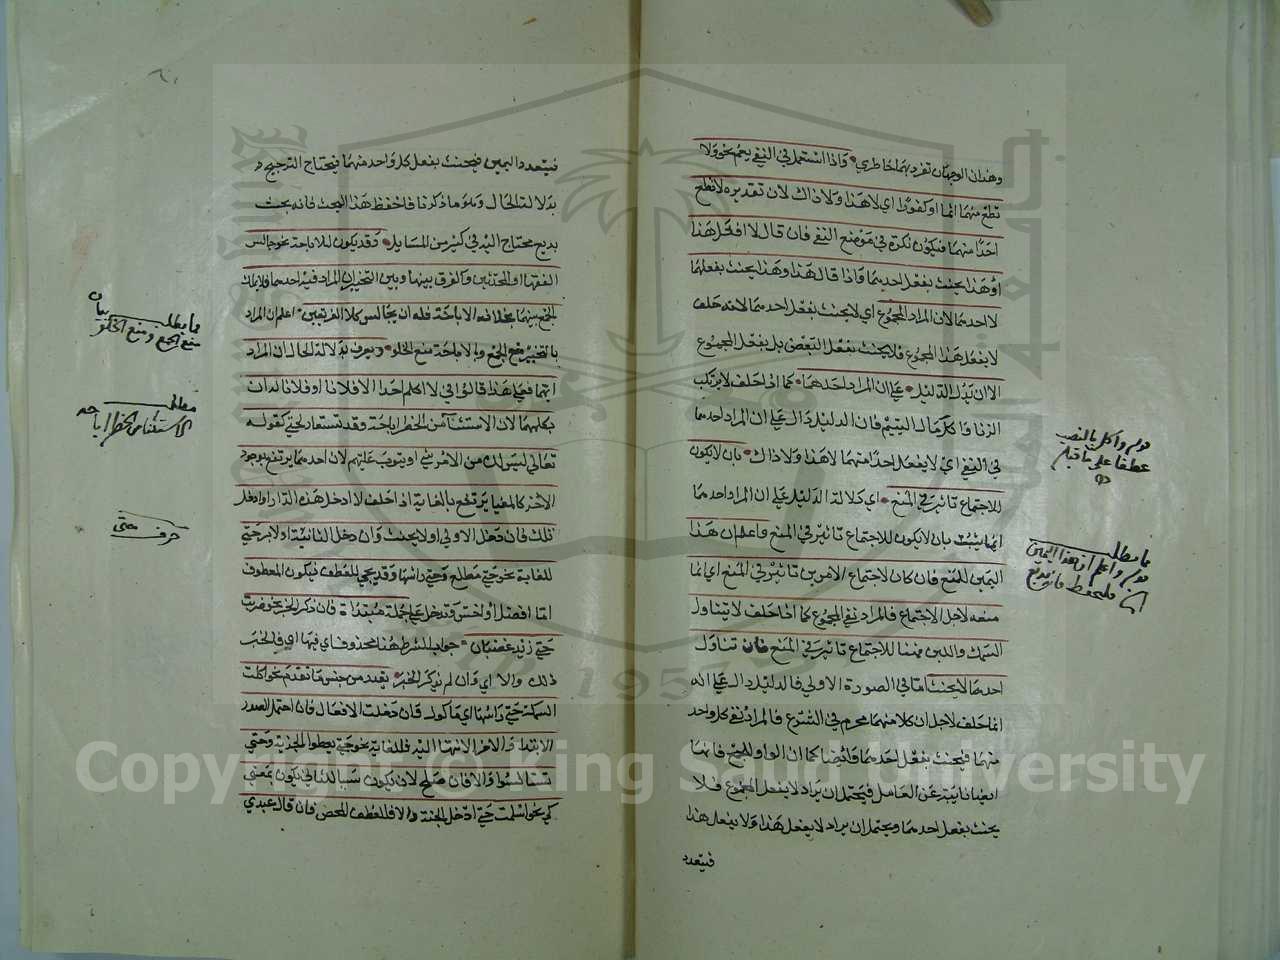 وهذان الوجهان تفرد بهما خاطري وإذا استعمل في النفي يعم نحو ولا
تطع منهما آثما أو كفورا أي لا هذا ولا ذاك لأن تقديره لا تطع
أحدا منهما فيكون نكرة في موضع النفي فإن قال لا أفعل هذا
أو هذا يحنث بفعل أحدهما وإذا قال هذا وهذا يحنث بفعلهما
لا أحدهما لأن المراد المجموع أي لا يحنث بفعل أحدهما لأنه حلف
لا يفعل هذا المجموع فلا يحنث بفعل البعض بل بفعل المجموع
إلا أن يدل الدليل على أن المراد أحدهما كما إذا حلف لا يرتكب
الزنا وأكل مال اليتيم فإن الدليل دال على أن المراد أحدهما
في النفي أي لا يفعل أحدا منهما لا هذا ولا ذاك بأن لا يكون
للاجتماع تأثير في المنع أي دلالة الدليل على أن المراد أحدهما
إنما يثبت بأن لا يكون للاجتماع تأثير في المنع واعلم أن هذا
اليمين للمنع فإن كان لاجتماع الأمرين تأثير في المنع أي إنما
منعه لأجل الاجتماع فالمراد نفي المجموع كما إذا حلف لا يتناول
السمك واللبن فههنا للاجتماع تأثير في المنع فإن تناول
أحدهما لا يحنث أما في الصورة الأولى فالدليل دال على أنه
إنما حلف لأجل أن كلا منهما محرم في الشرع فالمراد نفي كل واحد
منهما فيحنث بفعل أحدهما وأيضا كما أن الواو للجمع فإنها
أيضا نائبة عن العامل فيحتمل أن يراد لا يفعل المجموع فلا
يحنث بفعل أحدهما ويحتمل أن يراد لا يفعل هذا ولا يفعل هذا
فيتعدد
قوله وأكل بالنصب
عطفا على ما قبله
مطلب
قوله واعلم أن هذا اليمين
فيتعدد اليمين فيحنث بفعل كل واحد منهما فيحتاج الترجيح
بدلالة الحال وهو ما ذكرنا فاحفظ هذا البحث فإنه بحث
بديع محتاج إليه في كثير من المسائل وقد يكون للإباحة نحو جالس
الفقهاء أو المحدثين والفرق بينها وبين التخيير أن المراد فيه أحدهما فلا يملك
الجمع بينهما بخلاف الإباحة فله أن يجالس كلا الفريقين اعلم أن المراد
بالتخيير منع الجمع وبالإباحة منع الخلو ويعرف بدلالة الحال أن المراد
أيهما فعلى هذا قالوا في لا أكلم أحدا إلا فلانا أو فلانا له أن
يكلمهما لأن الاستثناء من الحظر إباحة وقد تستعار لحتى كقوله
تعالى ليس لك من الأمر شيء أو يتوب عليهم لأن أحدهما يرتفع بوجود
الآخر كالمغيا يرتفع بالغاية إذا حلف لا أدخل هذه الدار أو أدخل
تلك فإن دخل الأولى أولا يحنث وإن دخل الثانية أولا بر حتى
للغاية نحو حتى مطلع وحتى رأسها وقد يجيء للعطف فيكون المعطوف
إما أفضل أو أخس وتدخل على جملة مبتدأة فإن ذكر الخبر نحو ضربت
حتى زيد غضبان جواب الشرط هنا محذوف أي فبها أي فالخبر
ذلك وإلا أي وإن لم يذكر الخبر يقدر من جنس ما تقدم نحو أكلت
السمكة حتى رأسها أي مأكول فإن دخلت الأفعال فإن احتمل الصدر
الامتداد والآخر الانتهاء إليه فللغاية نحو حتى يعطوا الجزية وحتى
تستأنسوا وإلا فإن صلح لأن يكون سببا للثاني يكون بمعنى
كي نحو أسلمت حتى أدخل الجنة وإلا فللعطف المحض فإن قال عبدي
مطلب بيان
منع الجمع ومنع الخلو
مطلب
الاستثناء من الحظر إباحة
حرف حتى
Copyright © King Saud University
1957